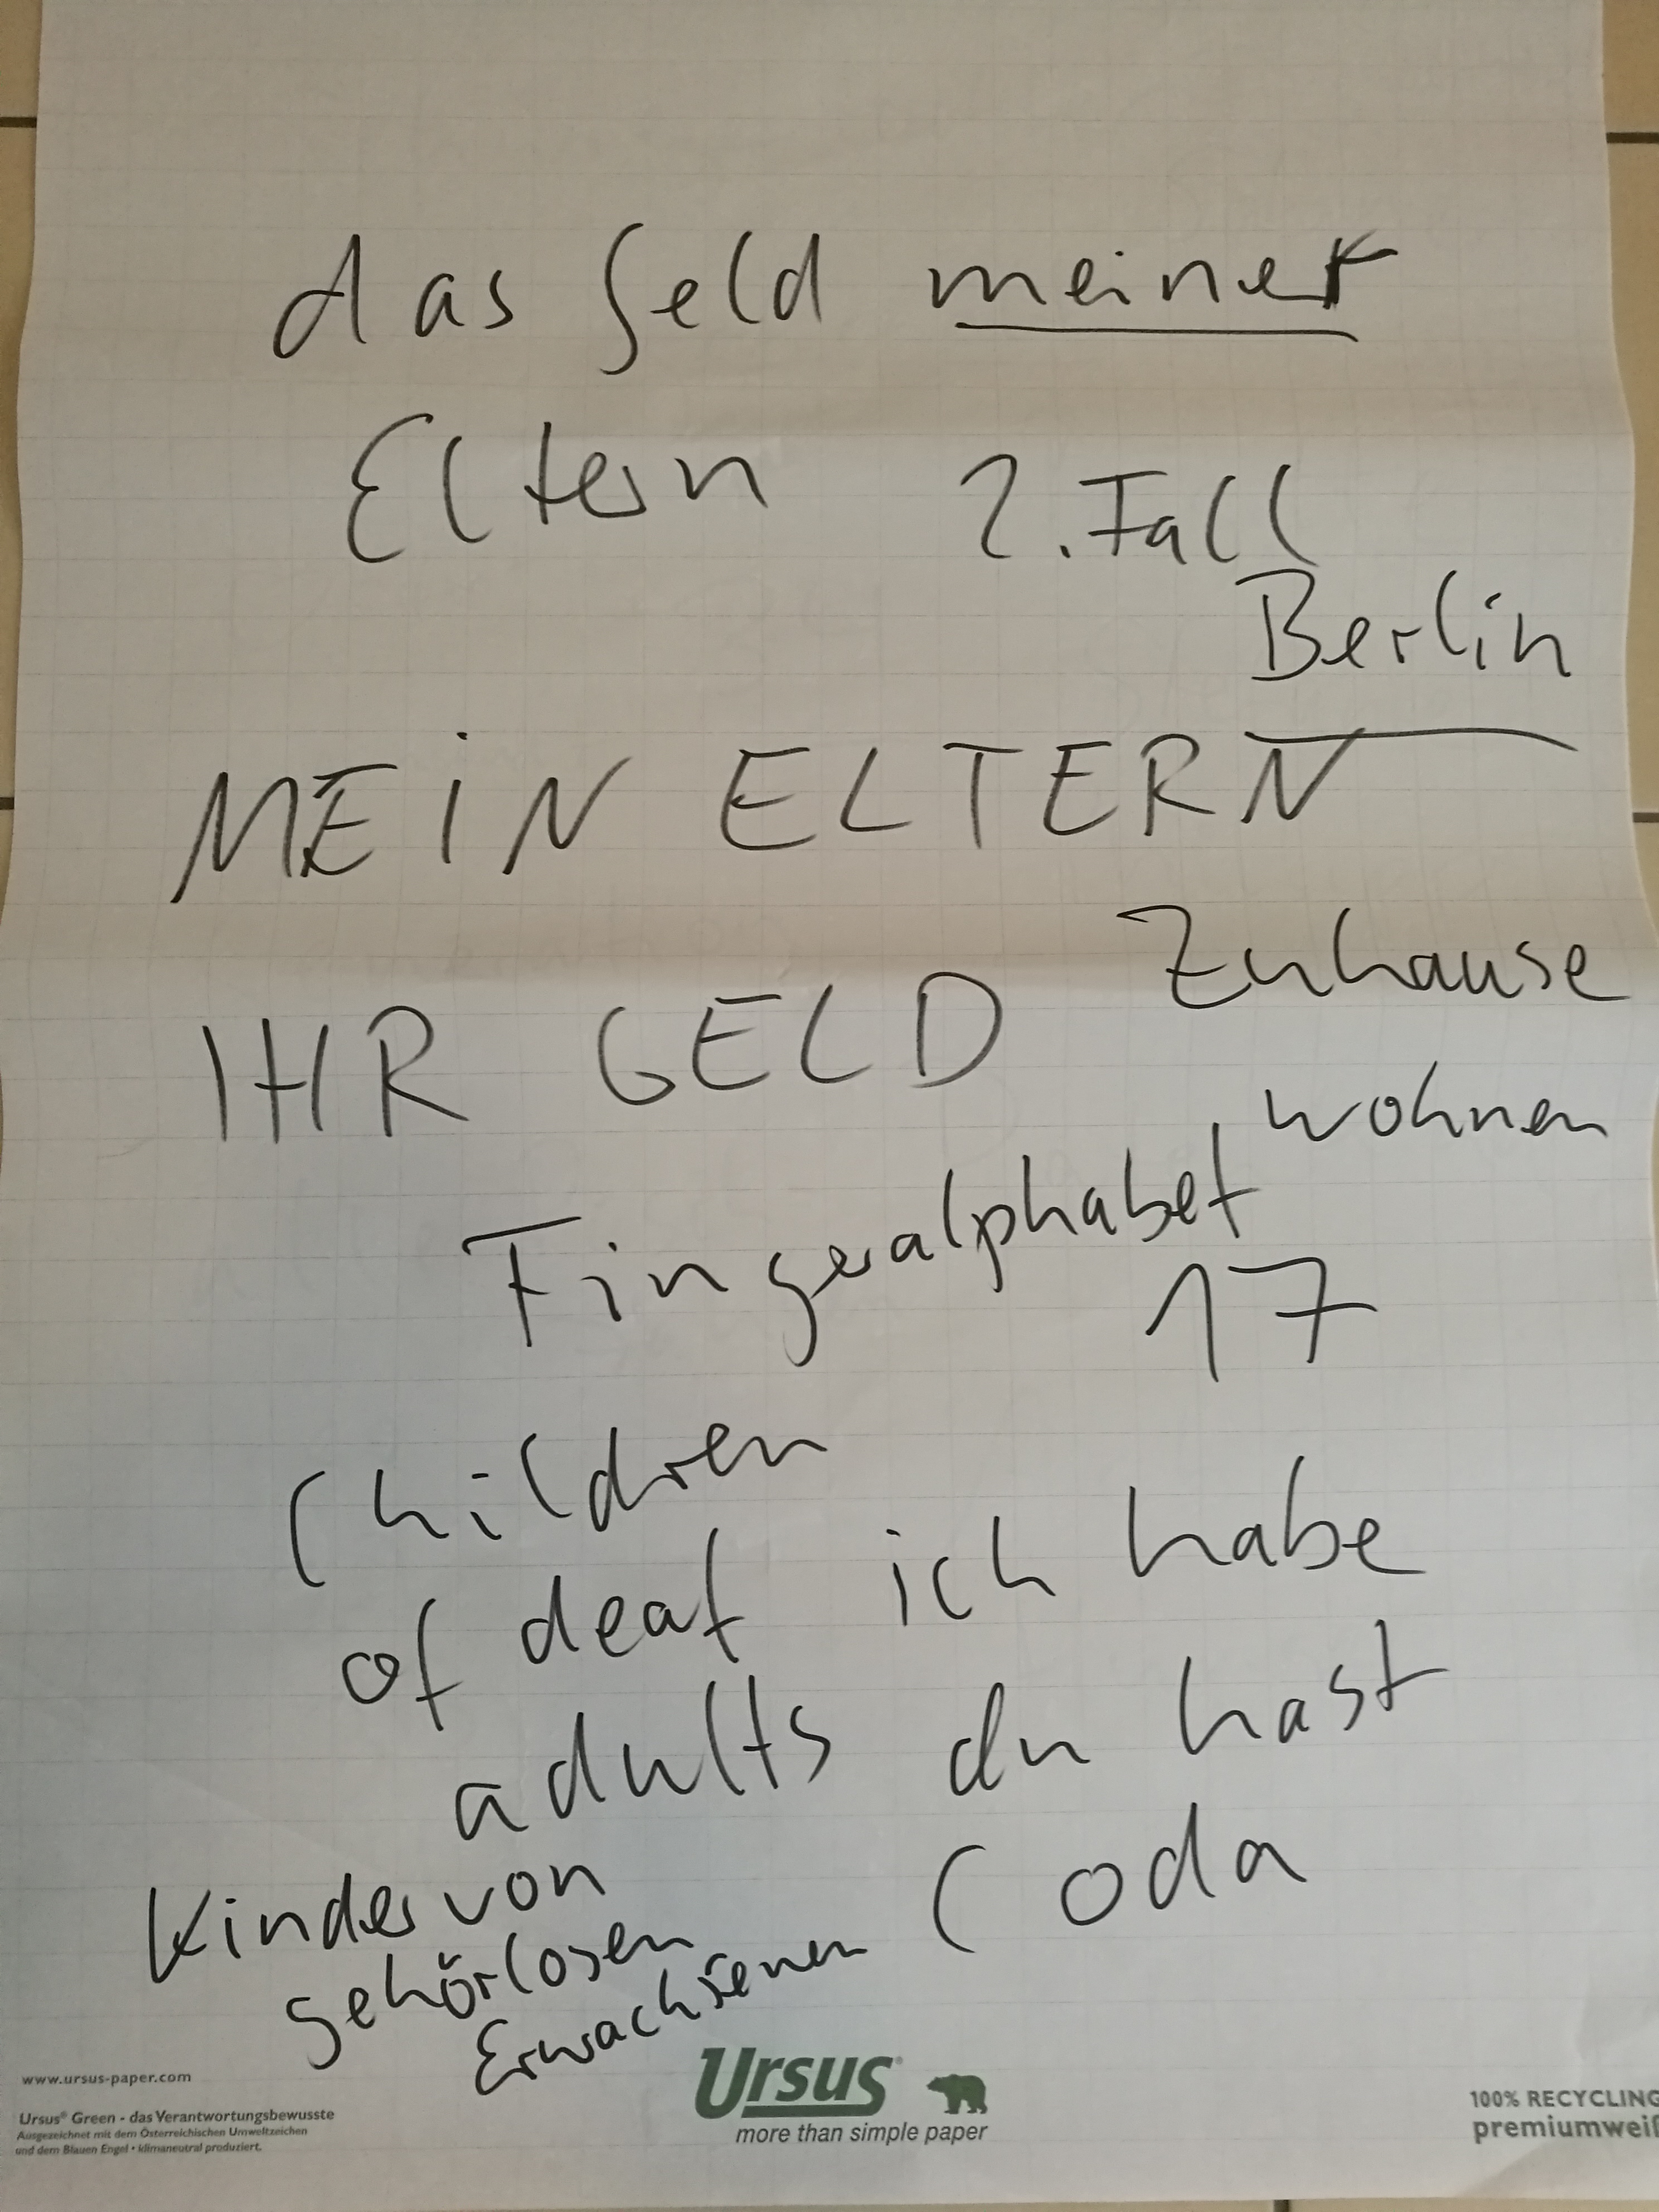 das Geld meiner
Eltern 2. Fall
Berlin
MEIN ELTERN
Zuhause
IHR GELD
wohnen
Fingeralphabet
17
Children
of deaf ich habe
adults du hast
Kinder von Coda
gehörlosen
Erwachsenen
www.ursus-paper.com
Ursus® Green - das Verantwortungsbewusste
Ausgezeichnet mit dem Österreichischen Umweltzeichen
und dem Blauen Engel • klimaneutral produziert.
Ursus®
more than simple paper
100% RECYCLING
premiumweiß